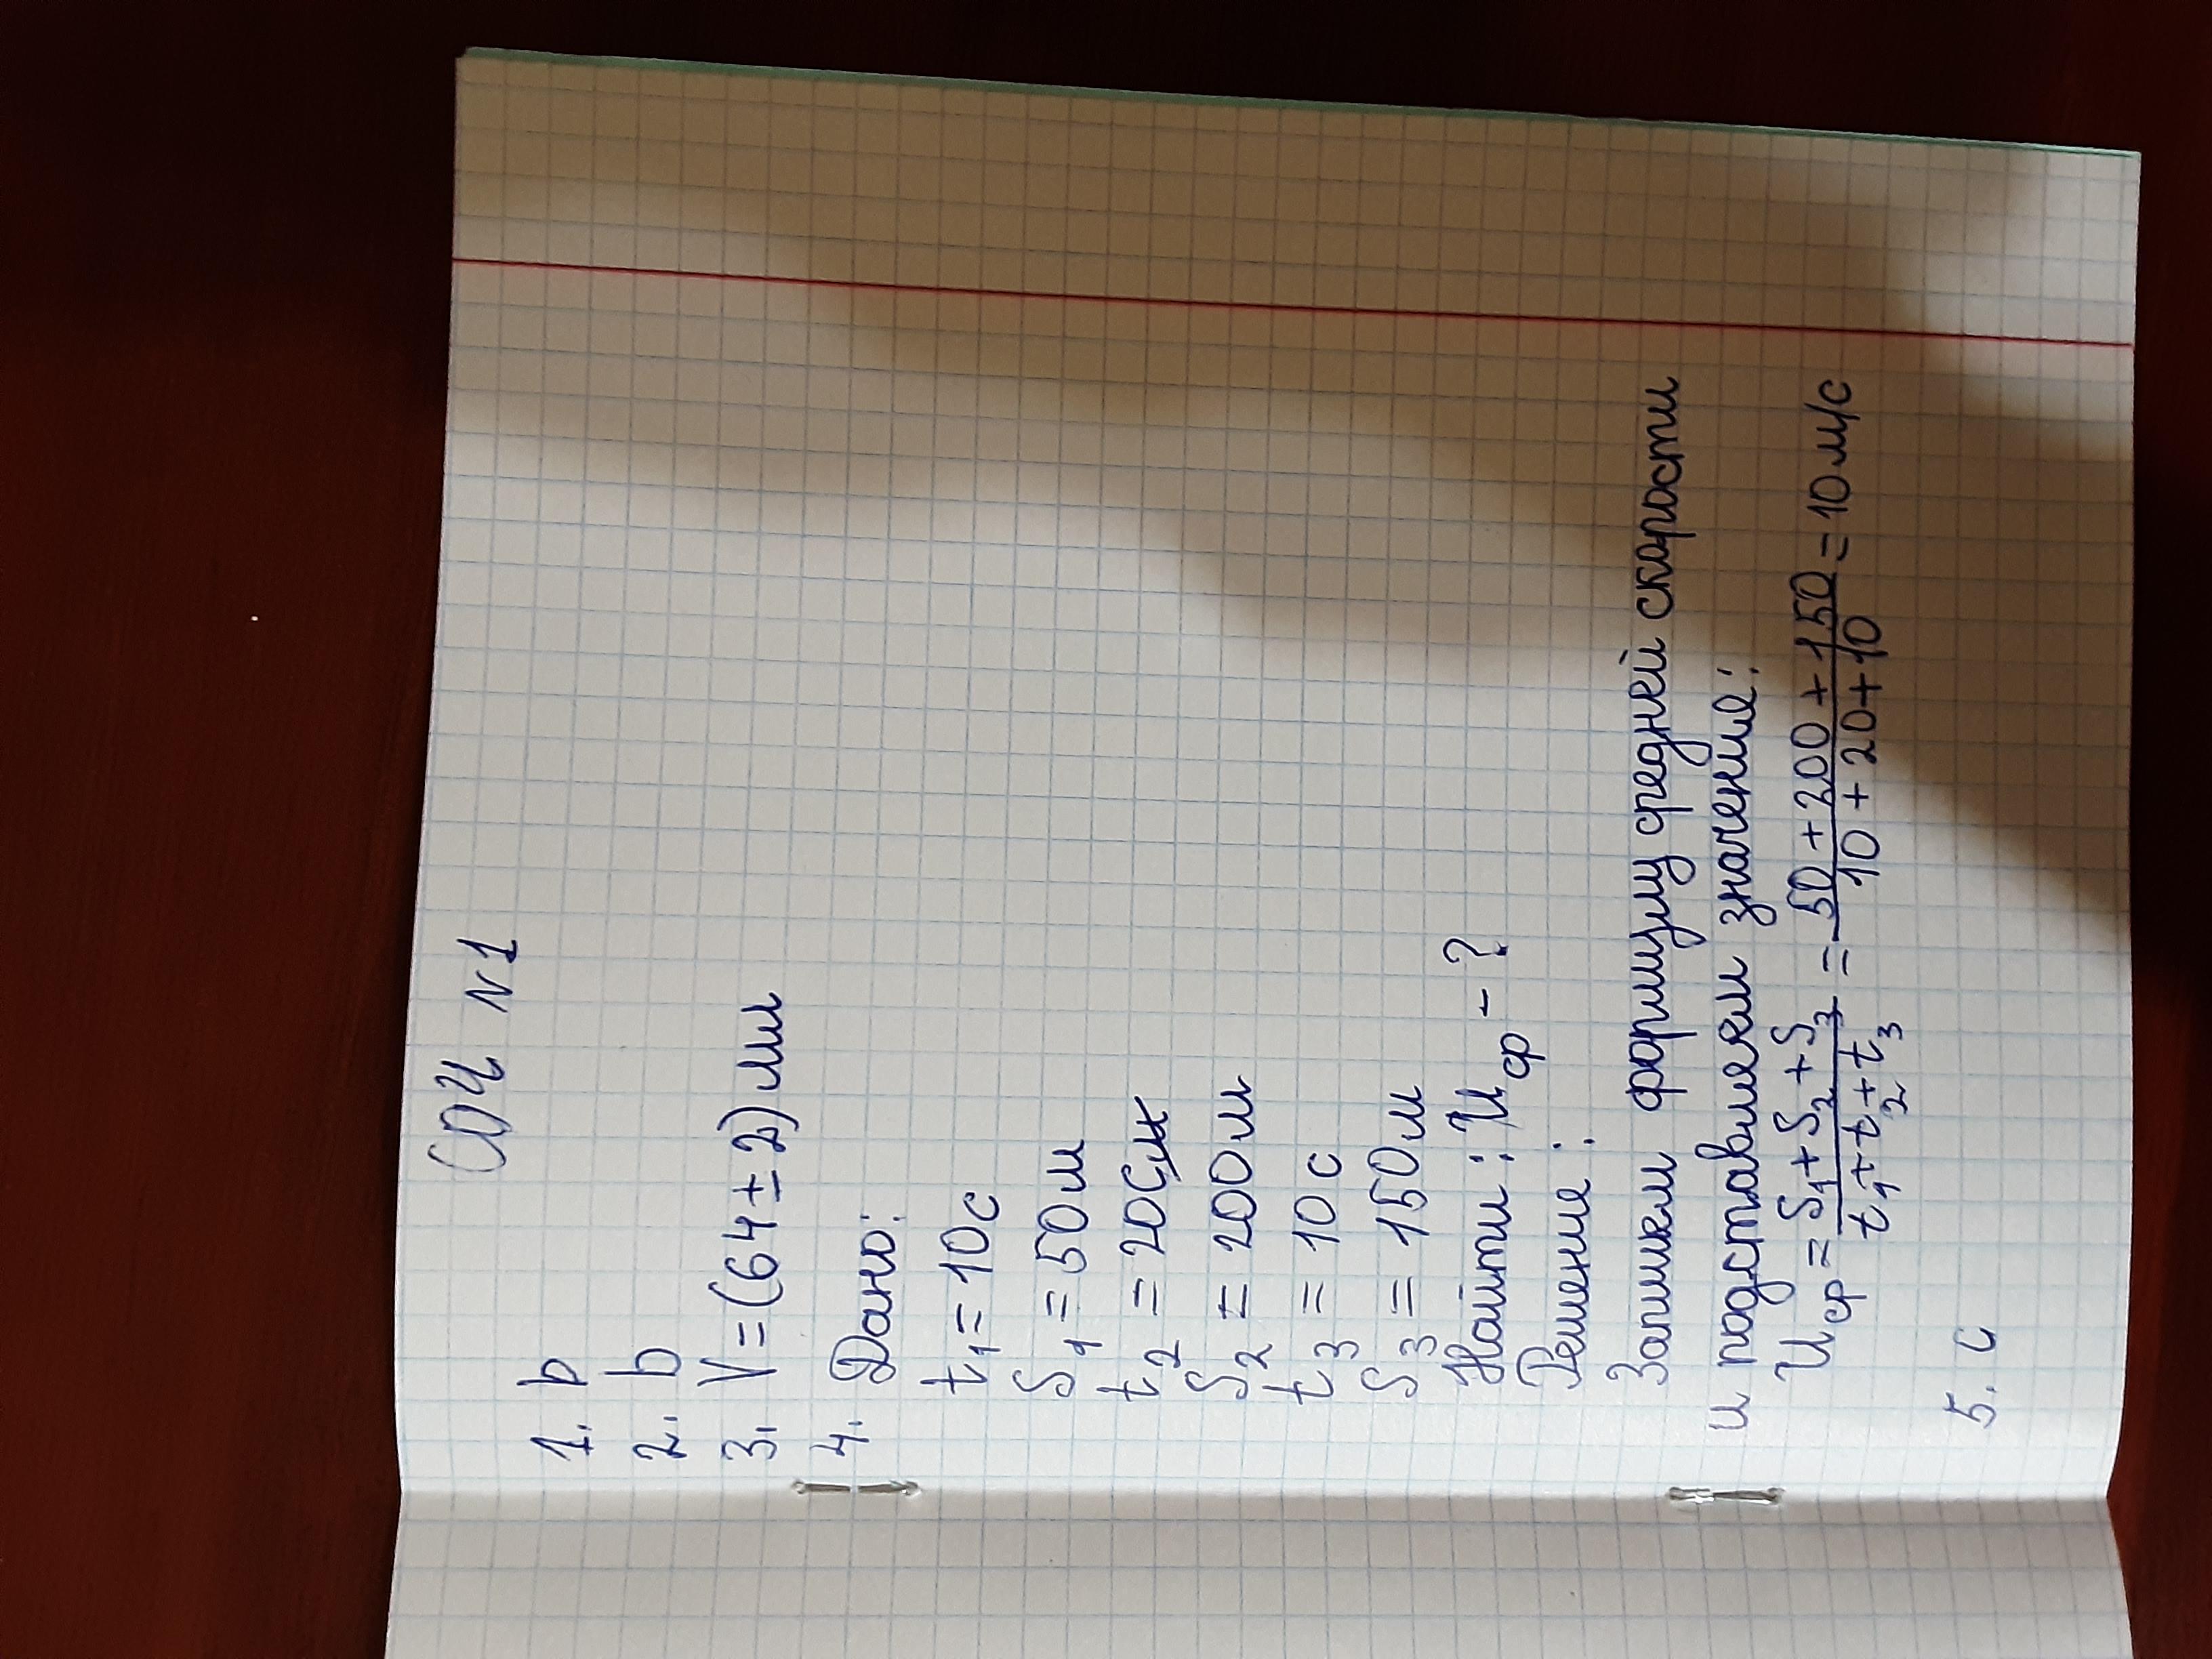 СОЧ №1
1. b
2. b
3. V=(64±2)мл
4. Дано:
t₁=10с
S₁=50м
t₂=20с
S₂=200м
t₃=10с
S₃=150м
Найти: Uср-?
Решение:
Запишем формулу средней скорости
и подставляем значение:
Uср=(S₁+S₂+S₃)/(t₁+t₂+t₃)=(50+200+150)/(10+20+10)=10м/с
5. c